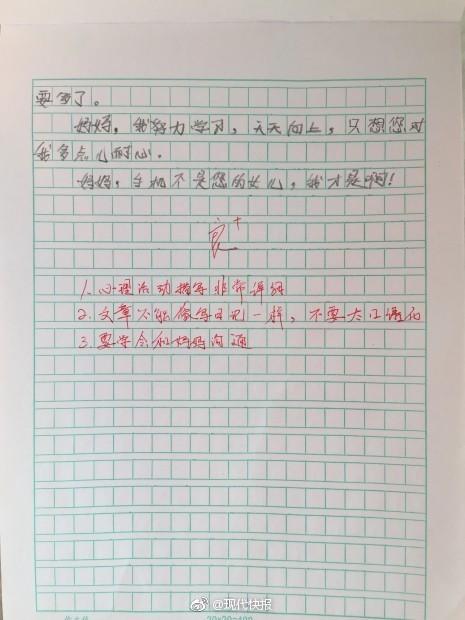 要多了。
妈妈，我努力学习，天天向上，只想您对
我多点儿耐心。
妈妈，手机不是您的女儿，我才是啊！
良+
1.心理活动描写非常详细
2.文章不能像写日记一样，不要太口语化
3.要学会和妈妈沟通
@现代快报
20×20=400